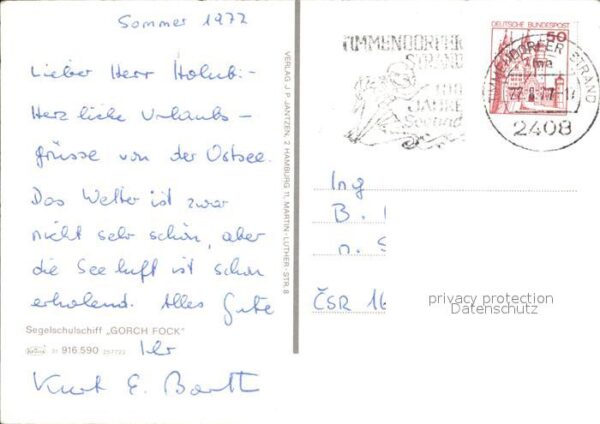 Sommer 1977
Lieber Herr Holub:-
Herzliche Urlaubs-
grüsse von der Ostsee.
Das Wetter ist zwar
nicht sehr schön, aber
die Seeluft ist schon
erholend. Alles Gute
Segelschulschiff „GORCH FOCK"
Krüger 916:590
Ihr
Kurt E. Barth
VERLAG J. P. JANTZEN, 2 HAMBURG 11, MARTIN-LUTHER-STR. 8
TIMMENDORFER
STRAND
100
JAHRE
Seebad
DEUTSCHE BUNDESPOST
50
TIMMENDORFER STRAND
1
2408
Ing
B.
n. S
ČSR 16
privacy protection
Datenschutz